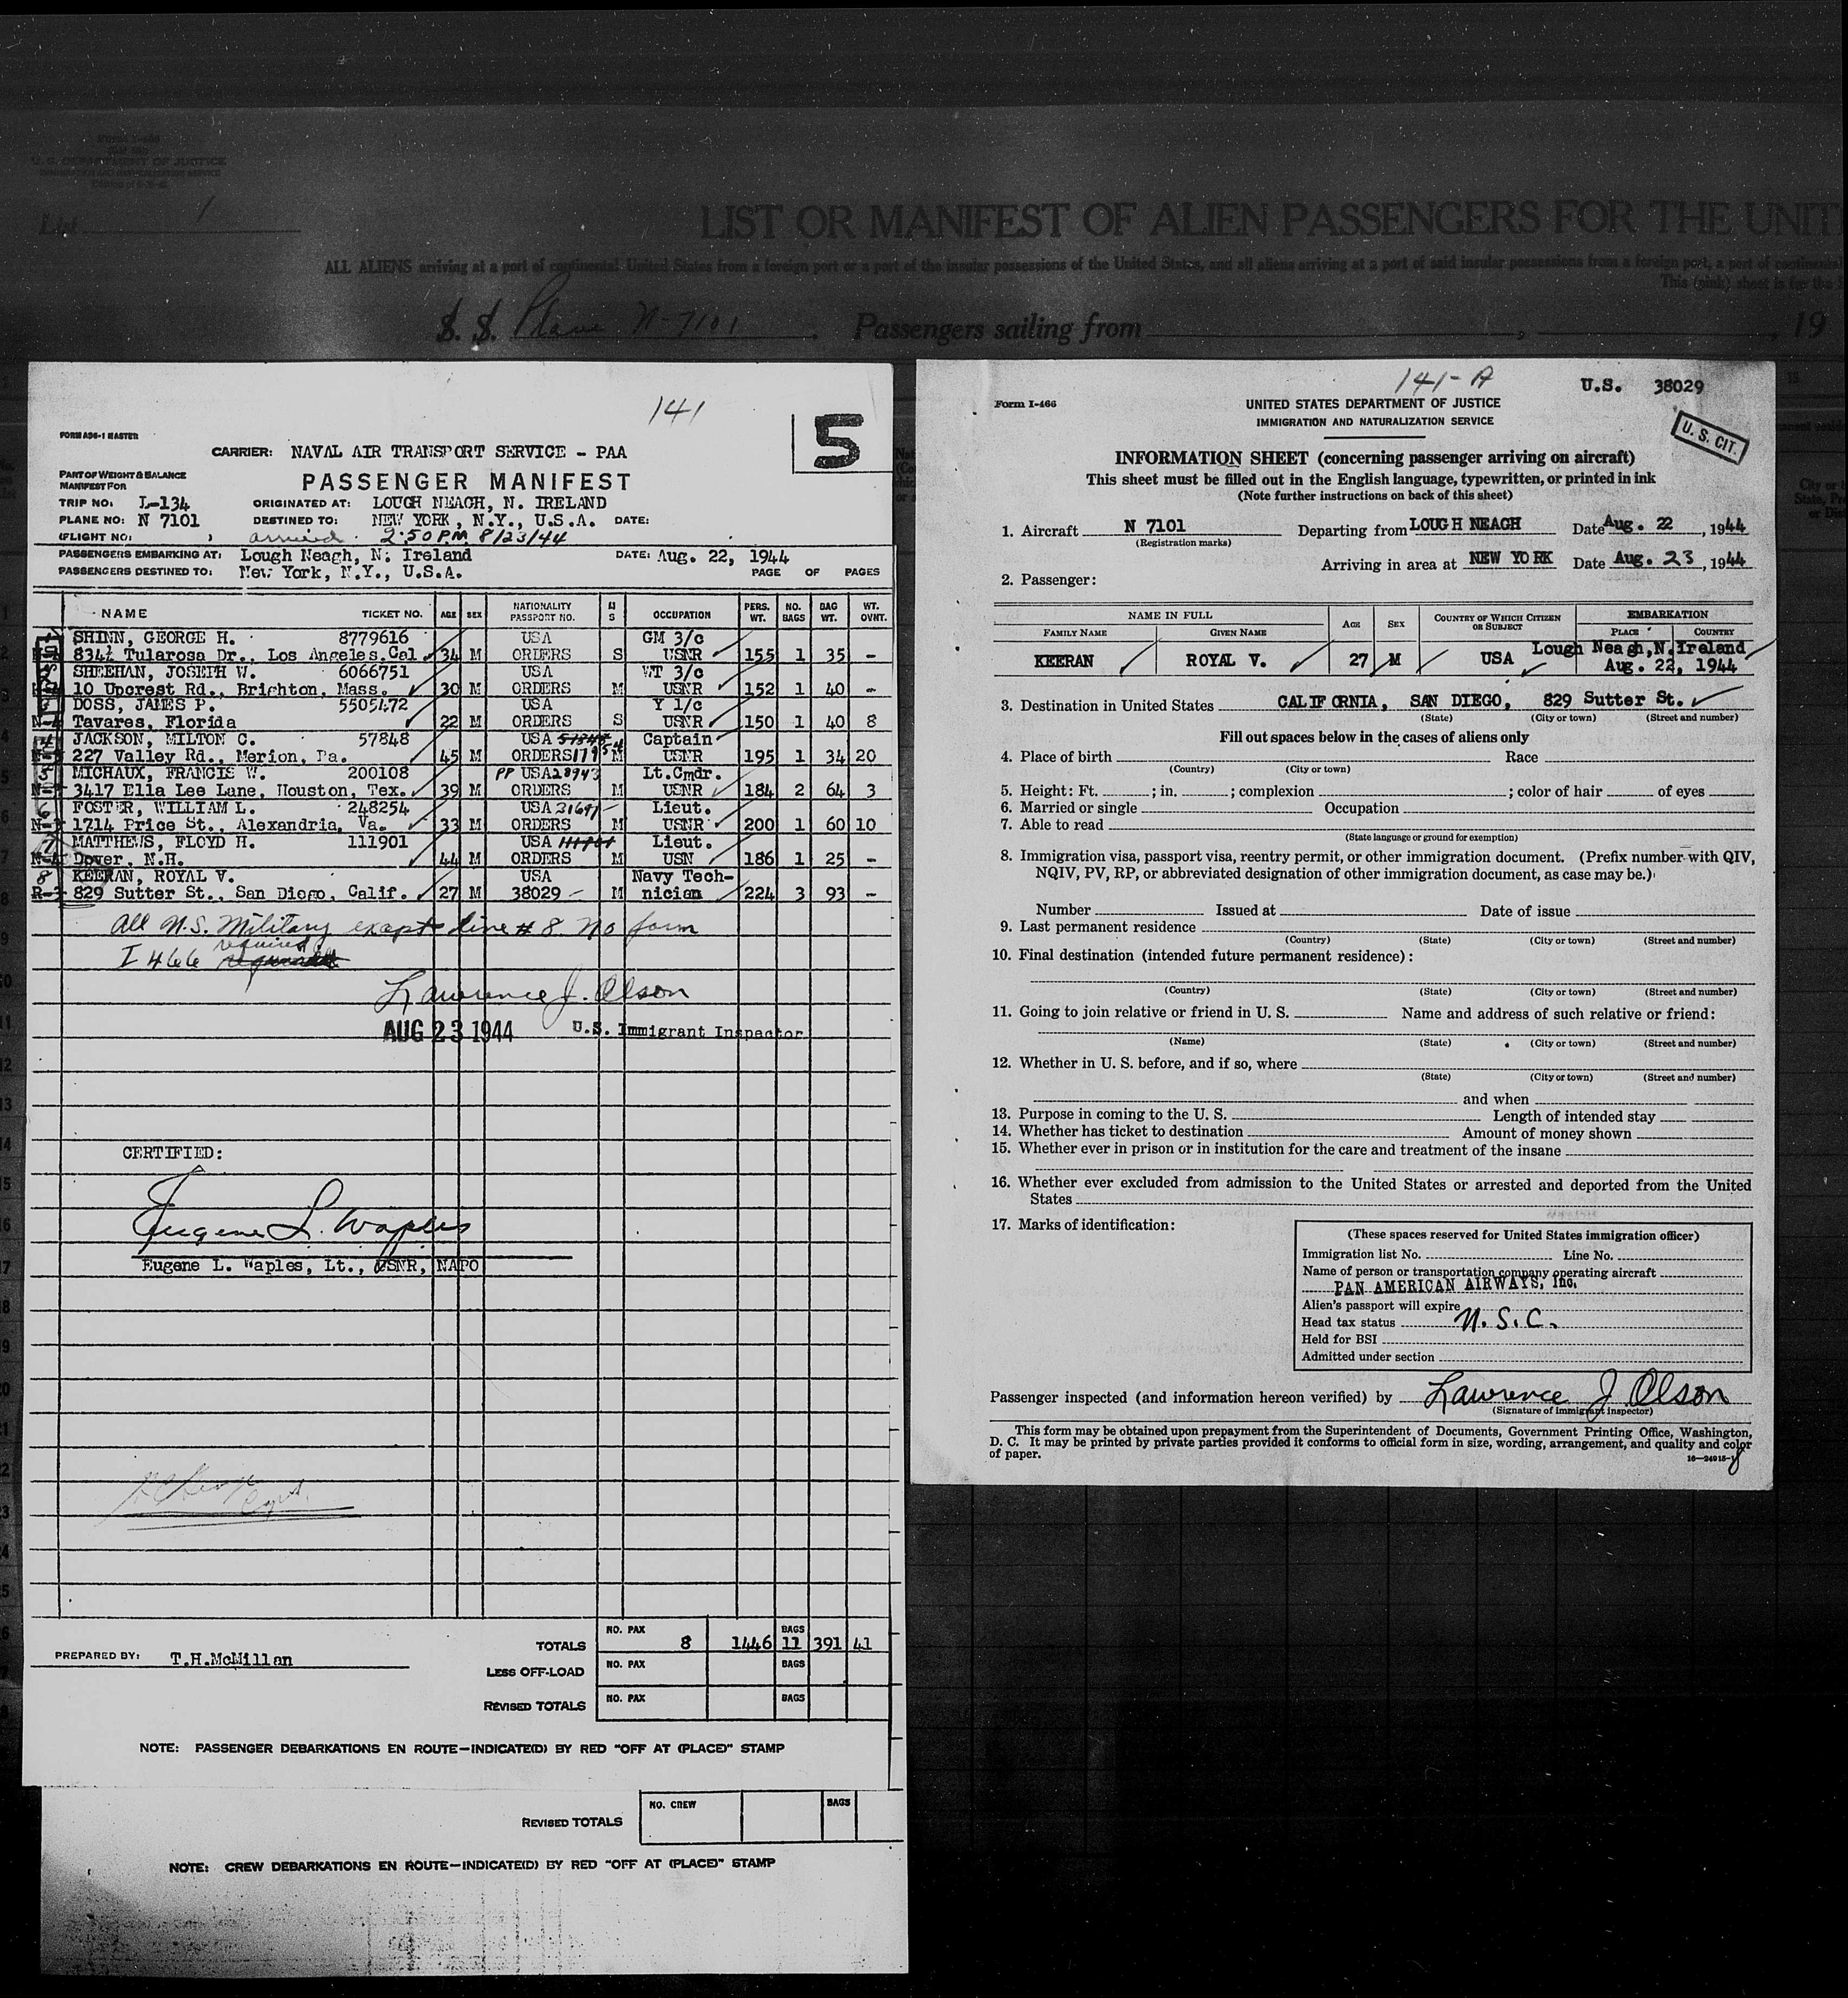 Form I-466
U. S. DEPARTMENT OF JUSTICE
IMMIGRATION AND NATURALIZATION SERVICE
List 1
LIST OR MANIFEST OF ALIEN PASSENGERS FOR THE UNIT
ALL ALIENS arriving at a port of continental United States from a foreign port or a port of the insular possessions of the United States, and all aliens arriving at a port of said insular possessions from a foreign port, a port of continental
This (pink) sheet is for the
S. S. Plane N-7101 Passengers sailing from , 19
141
5
FORM ADG-1 MASTER
CARRIER: NAVAL AIR TRANSPORT SERVICE - PAA
PART OF WEIGHT & BALANCE
MANIFEST FOR
PASSENGER MANIFEST
TRIP NO: L-134 ORIGINATED AT: LOUGH NEAGH, N. IRELAND
PLANE NO: N 7101 DESTINED TO: NEW YORK, N.Y., U.S.A. DATE:
(FLIGHT NO: ) arrived 2:50 PM 8/23/44
PASSENGERS EMBARKING AT: Lough Neagh, N. Ireland DATE: Aug. 22, 1944
PASSENGERS DESTINED TO: New York, N.Y., U.S.A. PAGE OF PAGES
NAME TICKET NO. AGE SEX NATIONALITY PASSPORT NO. M S OCCUPATION PERS. WT. NO. BAGS BAG WT. WT. OVNT.
SHINN, GEORGE H. 8779616 USA GM 3/c
834½ Tularosa Dr., Los Angeles, Cal 34 M ORDERS S USNR 155 1 35 -
SHEEHAN, JOSEPH W. 6066751 USA WT 3/c
10 Upcrest Rd., Brighton, Mass. 30 M ORDERS M USNR 152 1 40 -
DOSS, JAMES P. 5505472 USA Y 1/c
Tavares, Florida 22 M ORDERS S USNR 150 1 40 8
JACKSON, MILTON C. 57848 USA 57848 Captain
227 Valley Rd., Merion, Pa. 45 M ORDERS 117954 M USNR 195 1 34 20
5 MICHAUX, FRANCIS W. 200108 PP USA 28943 Lt.Cmdr.
3417 Ella Lee Lane, Houston, Tex. 39 M ORDERS M USNR 184 2 64 3
6 FOSTER, WILLIAM L. 248254 USA 31697 Lieut.
1714 Price St., Alexandria, Va. 33 M ORDERS M USNR 200 1 60 10
7 MATTHEWS, FLOYD H. 111901 USA Lieut.
Dover, N.H. 44 M ORDERS M USN 186 1 25 -
8 KEERAN, ROYAL V. USA Navy Tech-
829 Sutter St., San Diego, Calif. 27 M 38029 M nician 224 3 93 -
All U.S. Military exept line # 8. No form
I 466 required
Lawrence J. Olson
AUG 23 1944 U.S. Immigrant Inspector
CERTIFIED:
Eugene L. Waples
Eugene L. Waples, Lt., USNR, NAPO
TOTALS NO. PAX 8 1446 BAGS 11 391 41
PREPARED BY: T.H.McMillan
LESS OFF-LOAD NO. PAX BAGS
REVISED TOTALS NO. PAX BAGS
NOTE: PASSENGER DEBARKATIONS EN ROUTE—INDICATE(D) BY RED "OFF AT (PLACE)" STAMP
REVISED TOTALS NO. CREW BAGS
NOTE: CREW DEBARKATIONS EN ROUTE—INDICATE(D) BY RED "OFF AT (PLACE)" STAMP
141-A
U.S. 38029
Form I-466
UNITED STATES DEPARTMENT OF JUSTICE
IMMIGRATION AND NATURALIZATION SERVICE
U. S. CIT.
INFORMATION SHEET (concerning passenger arriving on aircraft)
This sheet must be filled out in the English language, typewritten, or printed in ink
(Note further instructions on back of this sheet)
1. Aircraft N 7101 Departing from LOUGH NEAGH Date Aug. 22, 1944
(Registration marks)
Arriving in area at NEW YORK Date Aug. 23, 1944
2. Passenger:
NAME IN FULL AGE SEX COUNTRY OF WHICH CITIZEN OR SUBJECT EMBARKATION
FAMILY NAME GIVEN NAME PLACE COUNTRY
KEERAN ROYAL V. 27 M USA Lough Neagh, N. Ireland
Aug. 22, 1944
3. Destination in United States CALIFORNIA, SAN DIEGO, 829 Sutter St.
(State) (City or town) (Street and number)
Fill out spaces below in the cases of aliens only
4. Place of birth Race
(Country) (City or town)
5. Height: Ft. ; in. ; complexion ; color of hair of eyes
6. Married or single Occupation
7. Able to read
(State language or ground for exemption)
8. Immigration visa, passport visa, reentry permit, or other immigration document. (Prefix number with QIV,
NQIV, PV, RP, or abbreviated designation of other immigration document, as case may be.)
Number Issued at Date of issue
9. Last permanent residence
(Country) (State) (City or town) (Street and number)
10. Final destination (intended future permanent residence):
(Country) (State) (City or town) (Street and number)
11. Going to join relative or friend in U. S. Name and address of such relative or friend:
(Name) (State) (City or town) (Street and number)
12. Whether in U. S. before, and if so, where
(State) (City or town) (Street and number)
and when
13. Purpose in coming to the U. S. Length of intended stay
14. Whether has ticket to destination Amount of money shown
15. Whether ever in prison or in institution for the care and treatment of the insane
16. Whether ever excluded from admission to the United States or arrested and deported from the United
States
17. Marks of identification:
(These spaces reserved for United States immigration officer)
Immigration list No. Line No.
Name of person or transportation company operating aircraft
PAN AMERICAN AIRWAYS, Inc.
Alien's passport will expire
Head tax status U. S. C.
Held for BSI
Admitted under section
Passenger inspected (and information hereon verified) by Lawrence J Olson
(Signature of immigrant inspector)
This form may be obtained upon prepayment from the Superintendent of Documents, Government Printing Office, Washington,
D. C. It may be printed by private parties provided it conforms to official form in size, wording, arrangement, and quality and color
of paper.
16—24915-1